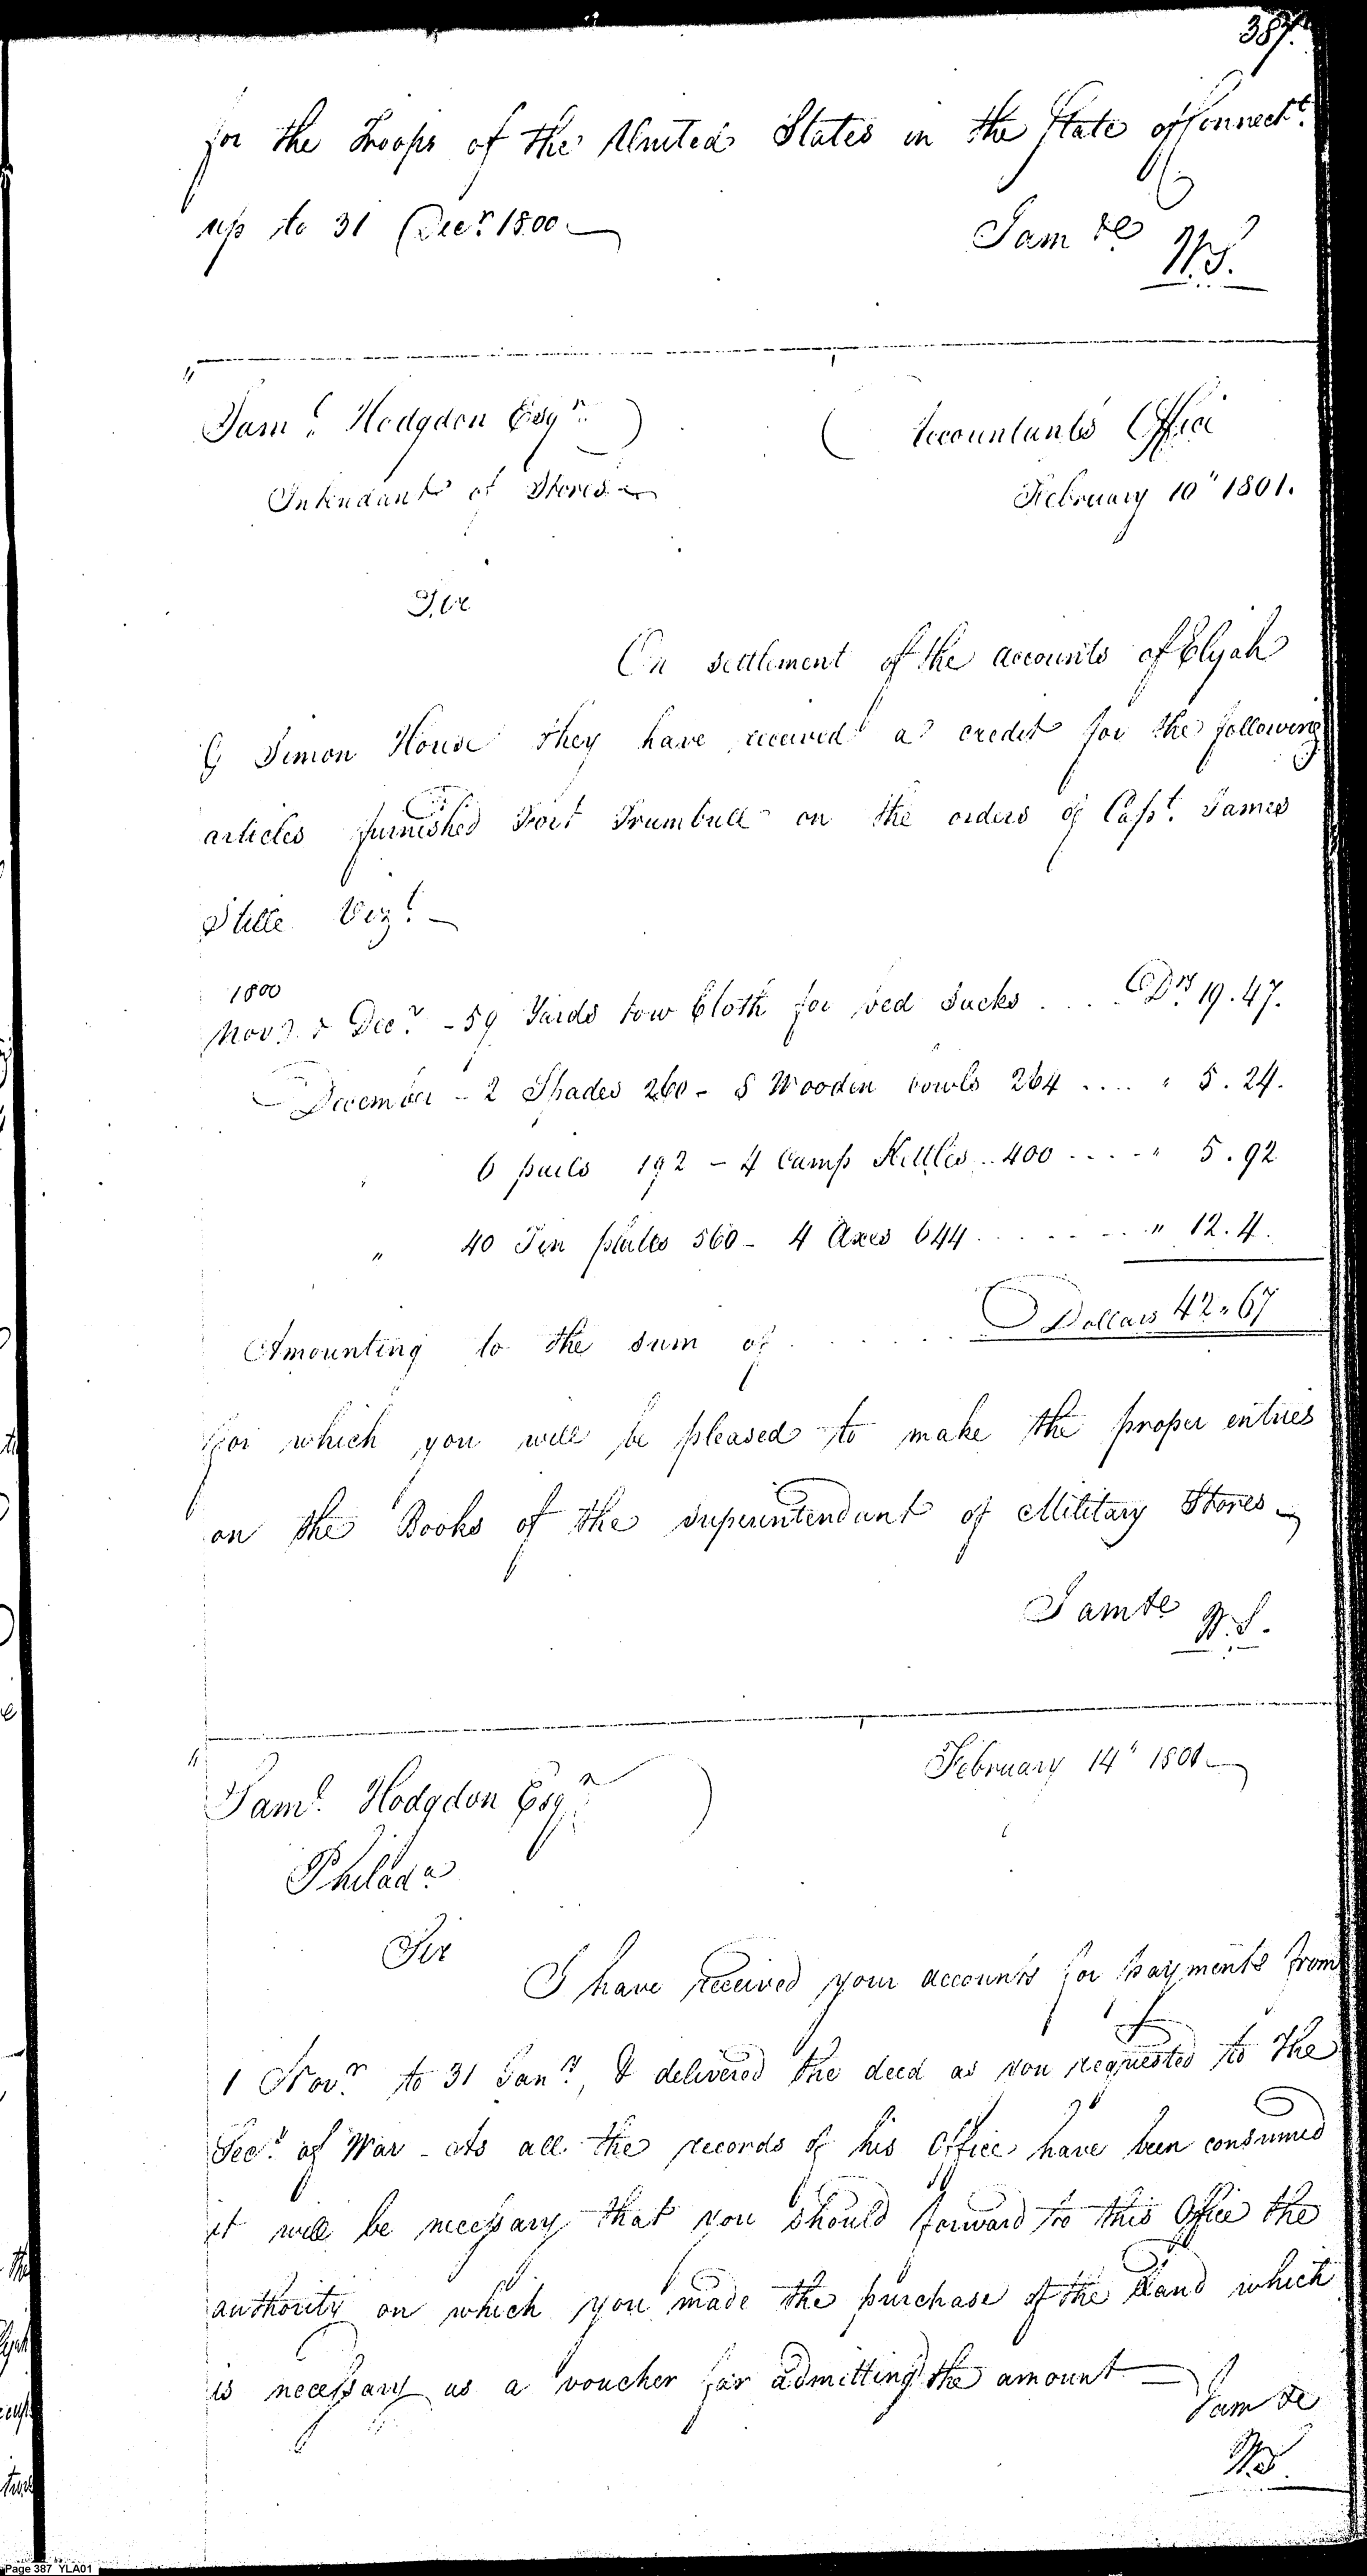 387.
for the Troops of the United States in the State of Connect.t
up to 31 Decr. 1800
I am &c
W.S.
Saml. Hodgdon Esqr.
Accountants Office
Intendant of Stores
February 10" 1801.
Sir
On settlement of the accounts of Elijah
& Simon House they have received a credit for the following
articles furnished Fort Trumbull on the orders of Capt. James
Stille Vizt.
1800
Novr. & Decr. - 59 Yards tow Cloth for bed Sacks .... Drs. 19.47.
December - 2 Spades 260 - 8 Wooden bowls 264 .... " 5.24.
" 6 pails 192 - 4 Camp Kettles .. 400 ..... " 5.92
" 40 Tin plates 560 - 4 Axes 644 ......... " 12.4.
Amounting to the sum of ...... Dollars 42.67
for which you will be pleased to make the proper entries
on the Books of the superintendant of Military Stores
I am &c
W.S.
February 14" 1801
Saml. Hodgdon Esqr.
Philada.
Sir
I have received your accounts for payments from
1 Novr. to 31 Jany., & delivered the deed as you requested to the
Secy. of War - As all the records of his Office have been consumed
it will be necessary that you should forward to this Office the
authority on which you made the purchase of the Land which
is necessary as a voucher for admitting the amount
I am &c
W.S.
Page 387 YLA01